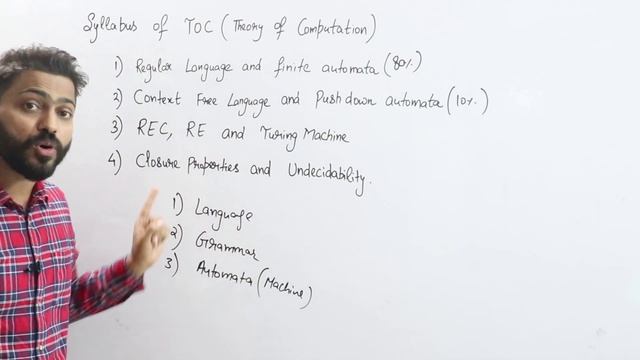 Syllabus of TOC (Theory of Computation)
1) Regular Language and finite automata (80%)
2) Context Free Language and Pushdown automata (10%)
3) REC, RE and Turing Machine
4) Closure Properties and Undecidability.
1) Language
2) Grammar
3) Automata (Machine)